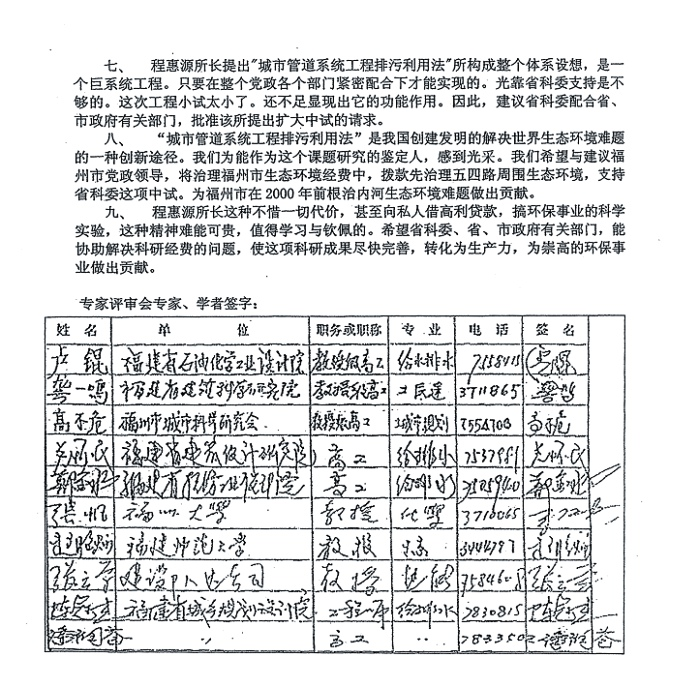 七、 程惠源所长提出"城市管道系统工程排污利用法"所构成整个体系设想，是一
个巨系统工程。只要在整个党政各个部门紧密配合下才能实现的。光靠省科委支持是不
够的。这次工程小试太小了。还不足显现出它的功能作用。因此，建议省科委配合省、
市政府有关部门，批准该所提出扩大中试的请求。
八、 “城市管道系统工程排污利用法”是我国创建发明的解决世界生态环境难题
的一种创新途径。我们为能作为这个课题研究的鉴定人，感到光采。我们希望与建议福
州市党政领导，将治理福州市生态环境经费中，拨款先治理五四路周围生态环境，支持
省科委这项中试。为福州市在2000年前根治内河生态环境难题做出贡献。
九、 程惠源所长这种不惜一切代价，甚至向私人借高利贷款，搞环保事业的科学
实验，这种精神难能可贵，值得学习与钦佩的。希望省科委、省、市政府有关部门，能
协助解决科研经费的问题，使这项科研成果尽快完善，转化为生产力，为崇高的环保事
业做出贡献。
专家评审会专家、学者签字：
姓名 单位 职务或职称 专业 电话 签名
卢锟 福建省石油化学工业设计院 教授级高工 给水排水
龚一鸣 福建省建筑科学研究院 教授级高工 3711865
高不危 福州市城市科学研究会 教授级高工 城市规划 7554703
福建省建筑设计研究院 高工 给排水
高工 给排水
张帆 福州大学 教授 化学 3710065
福建师范大学 教授
张立享 建设 公司 教授
福建省城乡规划设计院 工程师 给排水 7830815
〃 高工 〃 7833502